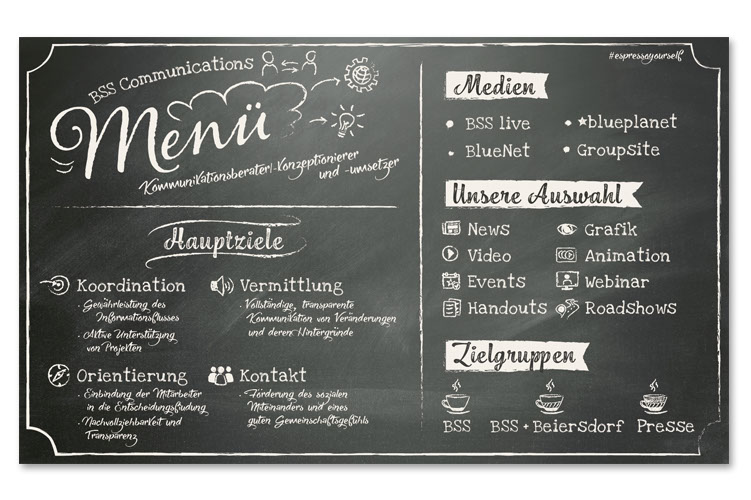 BSS Communications
Menü
Kommunikationsberater/-Konzeptionierer
und -umsetzer
Hauptziele
Koordination
• Gewährleistung des
Informationsflusses
• Aktive Unterstützung
von Projekten
Vermittlung
• Vollständige, transparente
Kommunikation von Veränderungen
und deren Hintergründe
Orientierung
• Einbindung der Mitarbeiter
in die Entscheidungsfindung
• Nachvollziehbarkeit und
Transparenz
Kontakt
• Förderung des sozialen
Miteinanders und eines
guten Gemeinschaftsgefühls
#espressoyourself
Medien
• BSS live
• ★blueplanet
• BlueNet
• Groupsite
Unsere Auswahl
News
Grafik
Video
Animation
Events
Webinar
Handouts
Roadshows
Zielgruppen
BSS
BSS + Beiersdorf
Presse